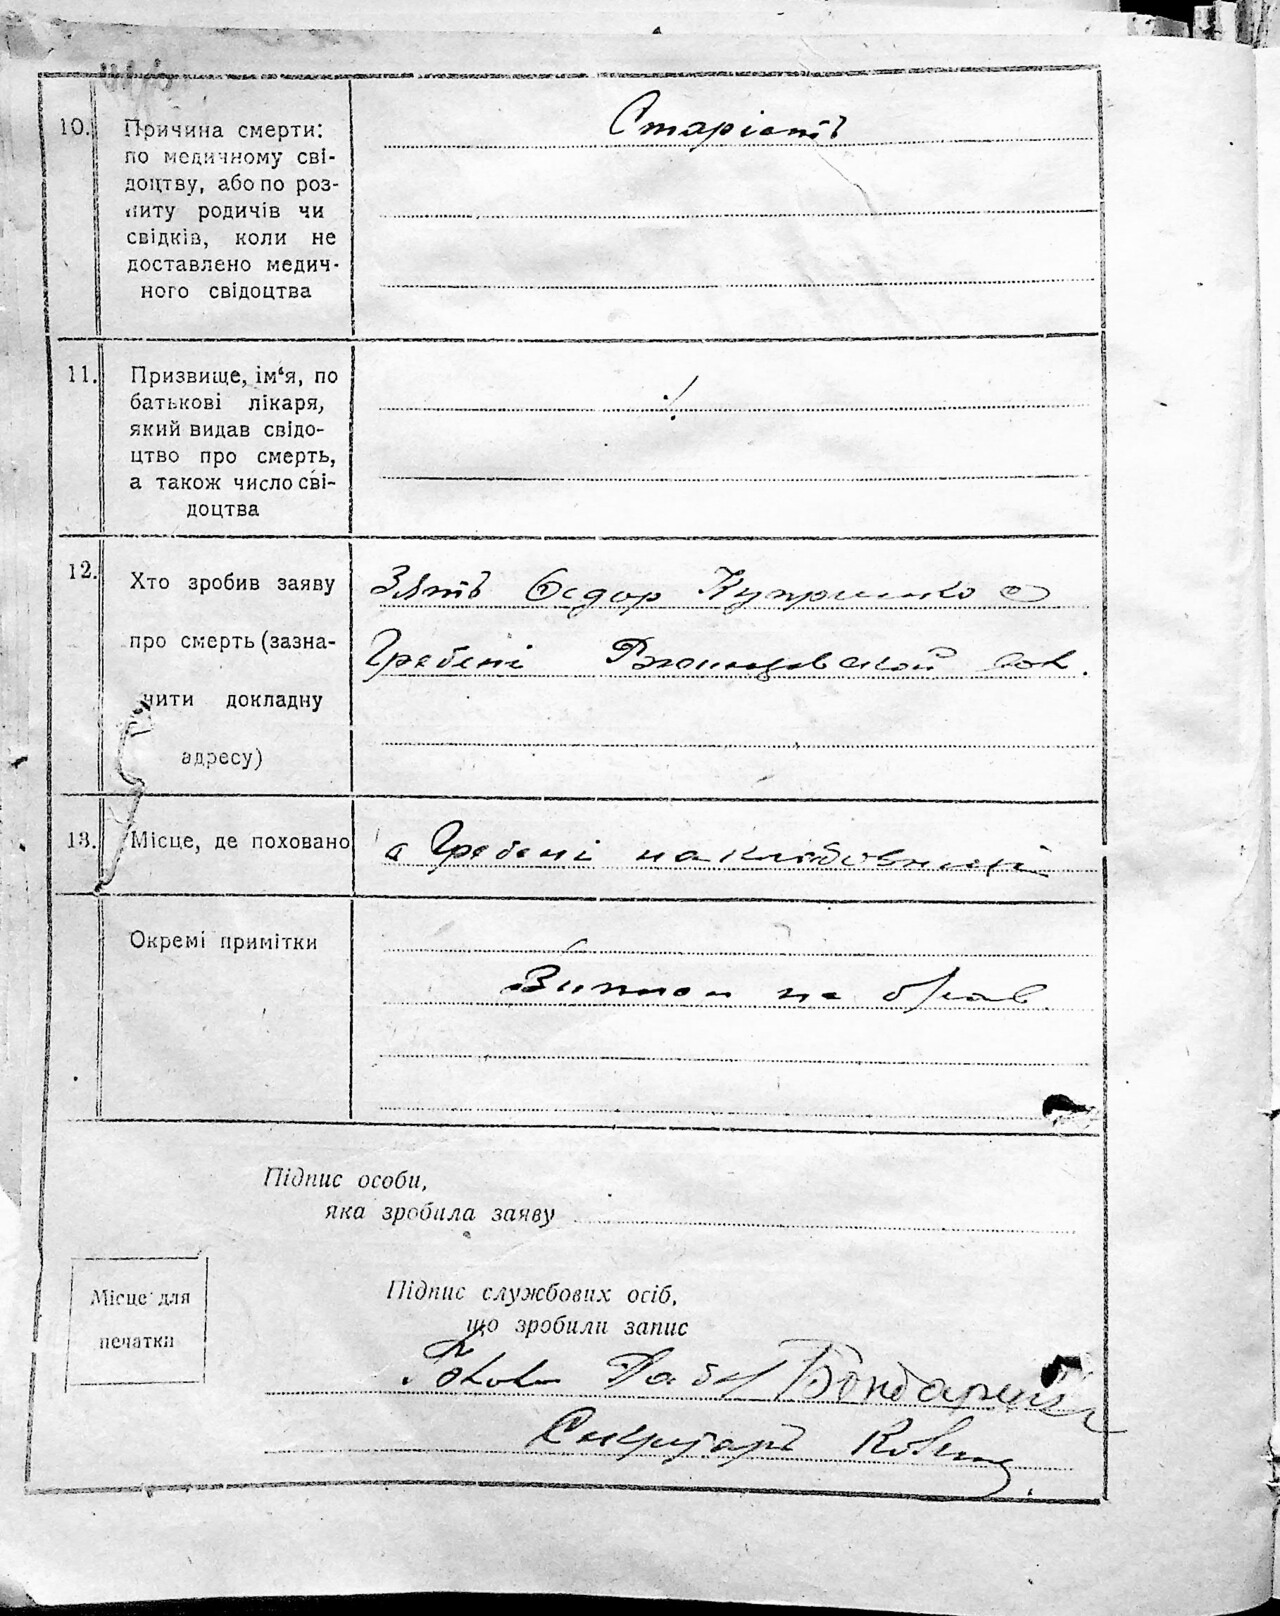 10. Причина смерти:
по медичному сві-
доцтву, або по роз-
питу родичів чи
свідків, коли не
доставлено медич-
ного свідоцтва
Старість
11. Призвище, ім‘я, по
батькові лікаря,
який видав свідо-
цтво про смерть,
а також число сві-
доцтва
12. Хто зробив заяву
про смерть (зазна-
чити докладну
адресу)
Зять Федор Куприенко с
Гребені
13. Місце, де поховано
с Гребені на кладовищі
Окремі примітки
Підпис особи,
яка зробила заяву
Місце для
печатки
Підпис службових осіб,
що зробили запис
Голова
Секрутарь